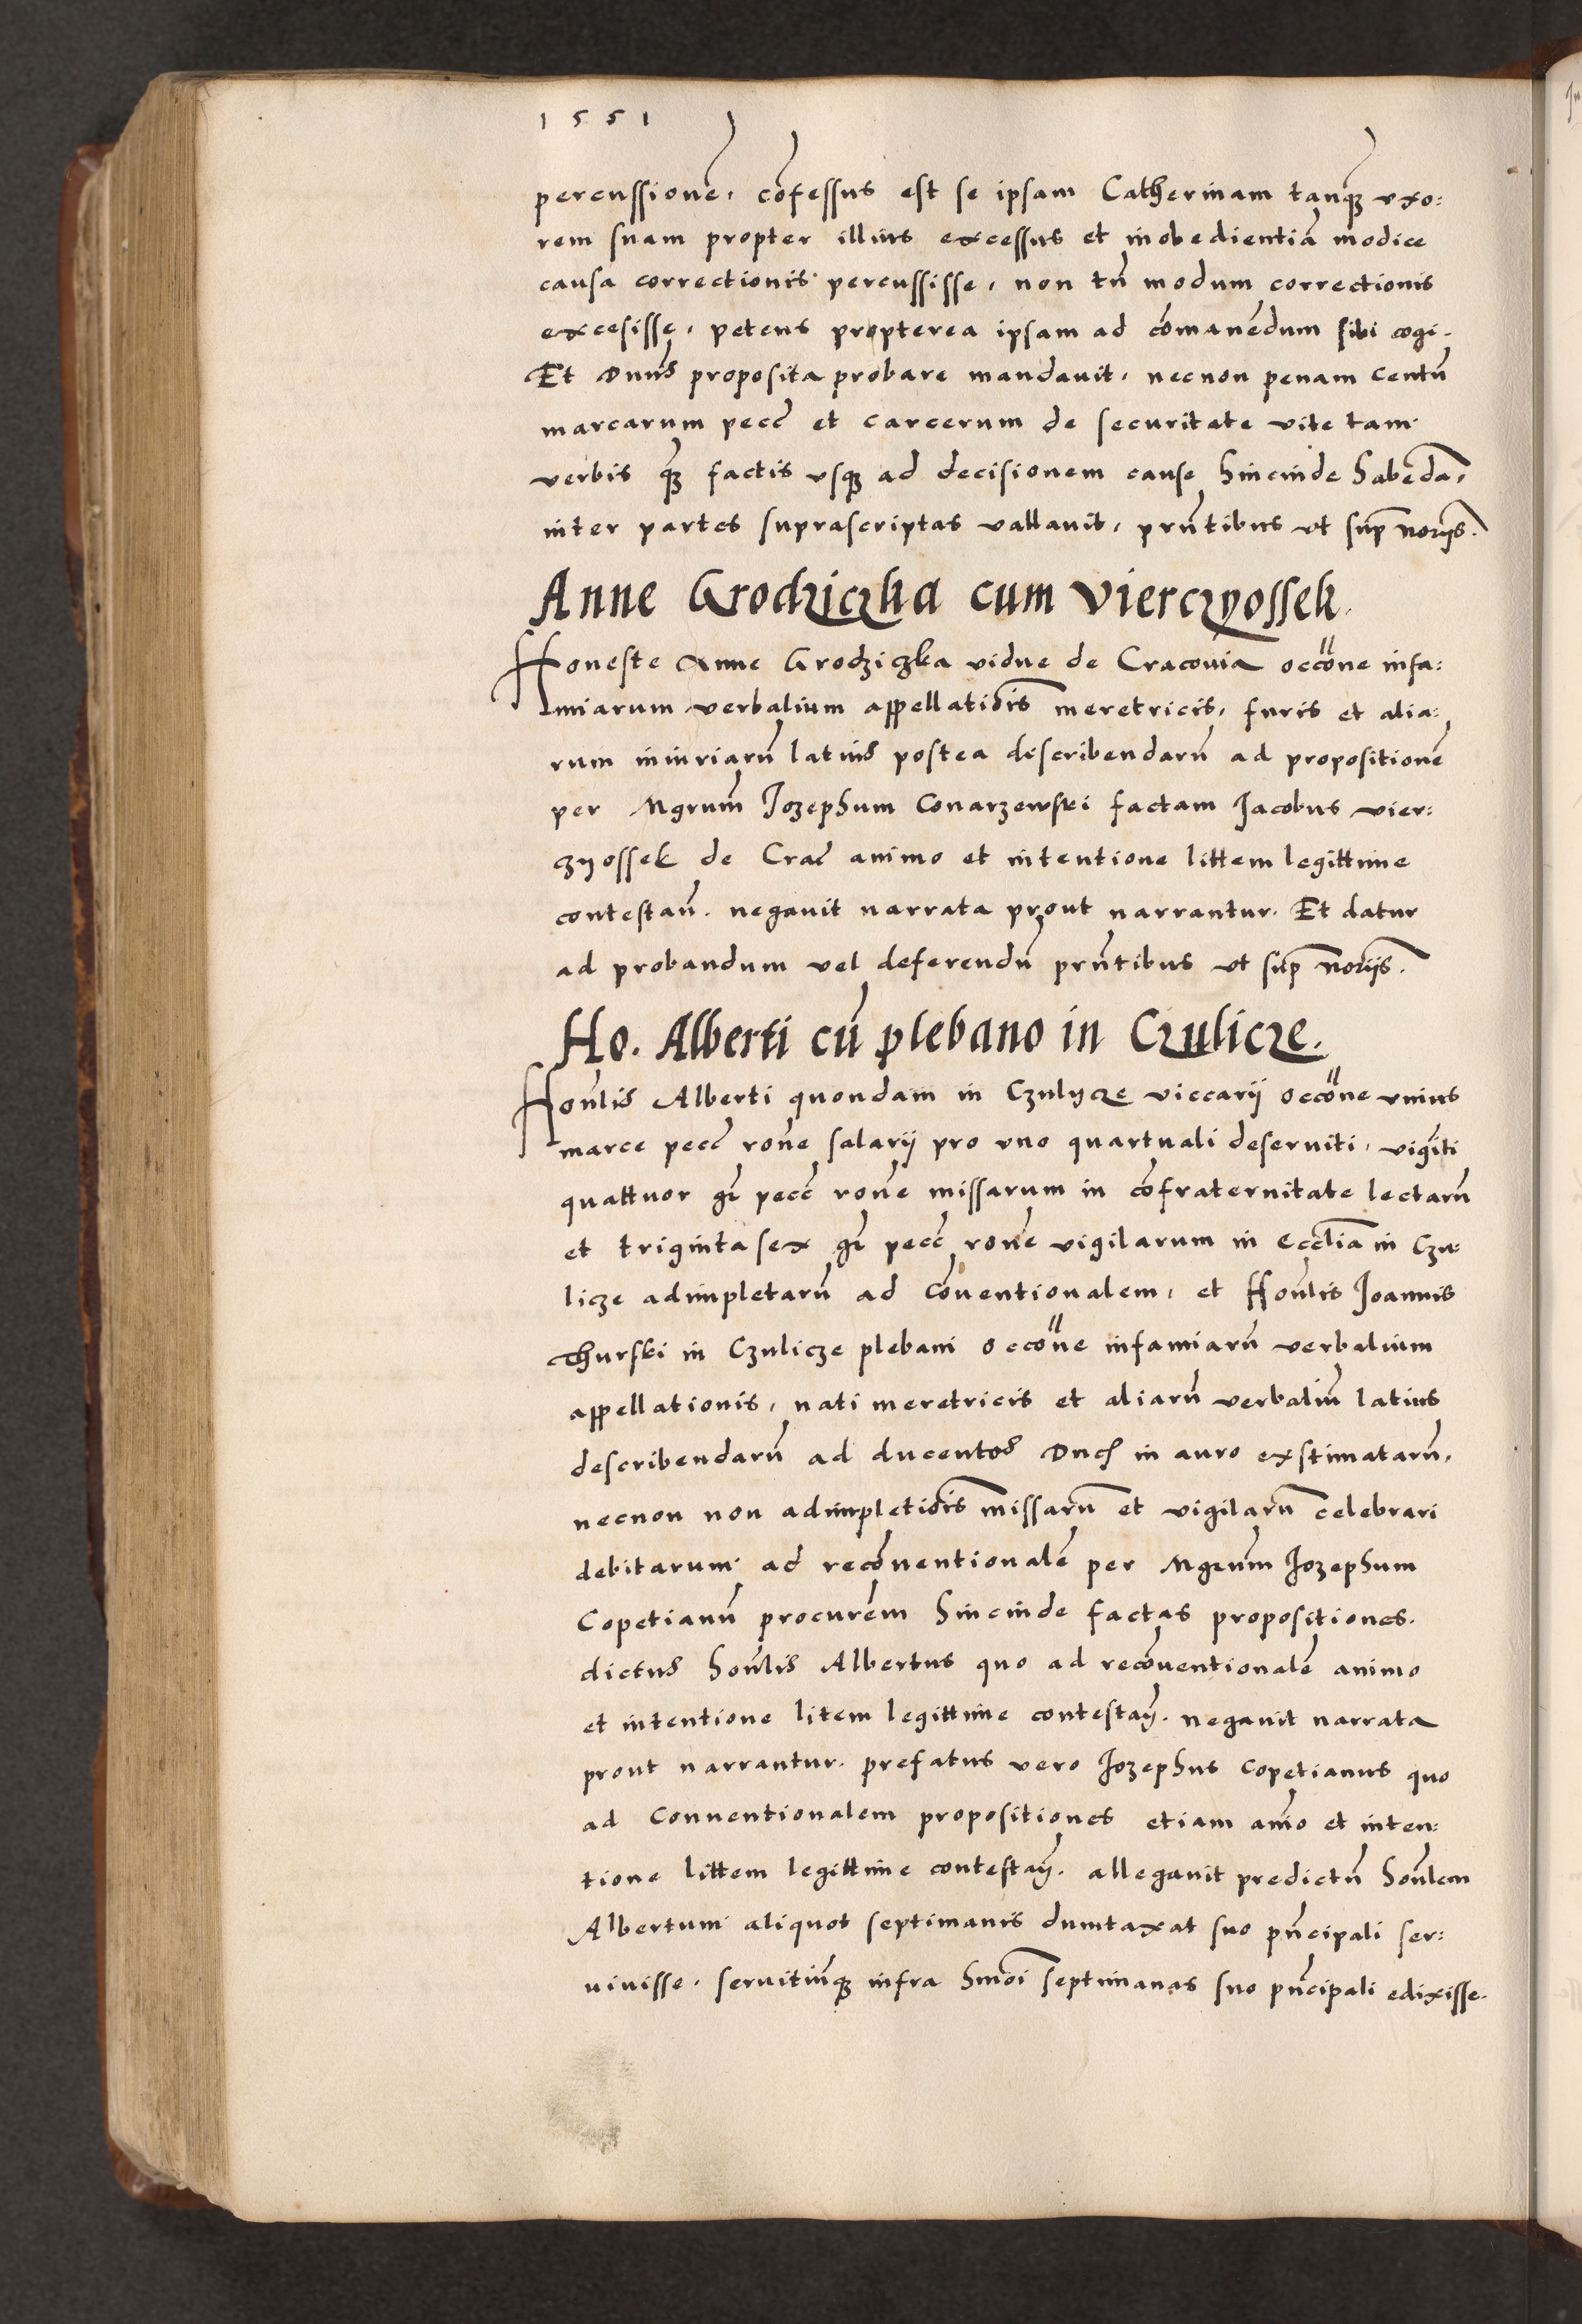 1551
percussionē, cōfessus est se ipsam Catherinam tanq̄ȝ uxo:
rem suam propter illius excessus et inobedientiā modice
causa correctionis percussisse, non tn̄ modum correctionis
excesisse, petens propterea ipsam ad cōmanēdum sibi cogi.
Et Dnūs proposita probare mandauit, necnon penam centū
marcarum pecc̄ et carcerum de securitate vite tam
verbis q̄ȝ factis usqȝ ad decisionem cause hincinde habēda,
inter partes suprascriptas vallauit, prn̄tibus ut sup̄ norijs.
Anne Grodziczka cum Vierczyossek.
Honeste Anne Grodziczka vidue de Cracouia occōne infa:
miarum verbalium appellatiōis meretricis, furis et alia:
rum iniuriarū latius postea describendarū ad propositionē
per Mgrum̄ Jozephum Conarzewski factam Jacobus Vier:
zyossek de Crac̄ animo et intentione littem legittime
contestan̄. negauit narrata prout narrantur. Et datur
ad probandum vel deferendū prn̄tibus ut sup̄ norijs.
Ho. Alberti cū plebano in Czulicze.
Hon̄lis Alberti quondam in Czulycze viccarij occōne unius
marce pecc̄ ron̄e salarij pro uno quartuali deseruiti, vigīti
quattuor gr̄ pecc̄ ron̄e missarum in cōfraternitate lectarū
et triginta sex gr̄ pecc̄ ron̄e vigilarum in Ecclīa in Czu:
licze adimpletarū ad cōuentionalem, et Hon̄lis Joannis
Thurski in Czulicze plebani occōne infamiarū verbalium
appellationis, nati meretricis et aliarū verbaliū latius
describendarū ad ducentos Duc̄ in auro exstimatarū,
necnon non adimpletiōis missarū et vigilarū celebrari
debitarum ad recōuentionalē per Mgrum̄ Jozephum
Copetianū procurēm hincinde factas propositiones.
dictus hon̄lis Albertus quo ad recōuentionalē animo
et intentione litem legittime contestan̄. negauit narrata
prout narrantur. prefatus vero Jozephus Copetianus quo
ad Conuentionalem propositiones etiam anīo et inten:
tione littem legittime contestan̄. allegauit predictū hon̄lem
Albertum aliquot septimanis dumtaxat suo pn̄cipali ser:
uiuisse, seruitiūqȝ infra hmōi septimanas suo pn̄cipali edixisse.